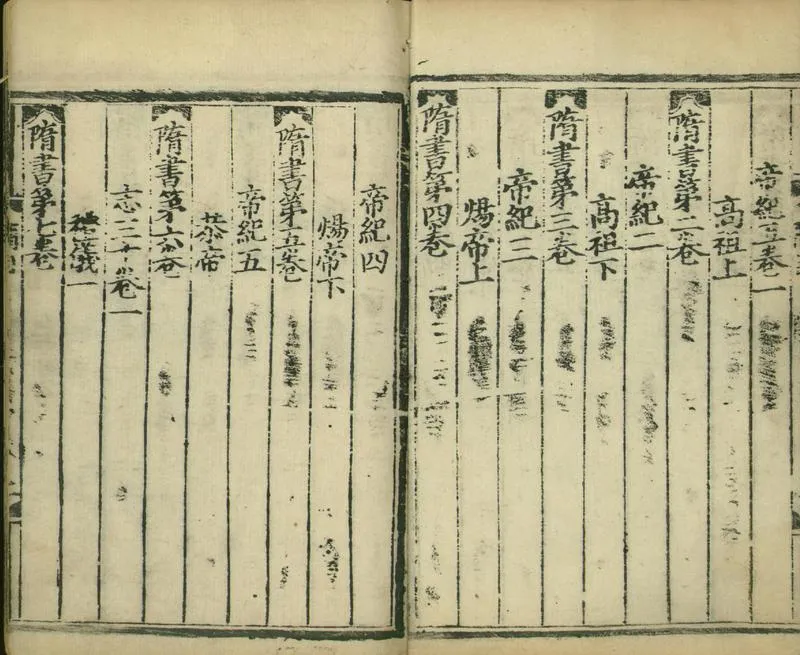 帝紀五卷一
高祖上
隋書第二卷
帝紀二
高祖下
隋書第三卷
帝紀三
煬帝上
隋書第四卷
帝紀四
煬帝下
隋書第五卷
帝紀五
恭帝
隋書第六卷
志三十卷一
禮儀一
隋書第七卷